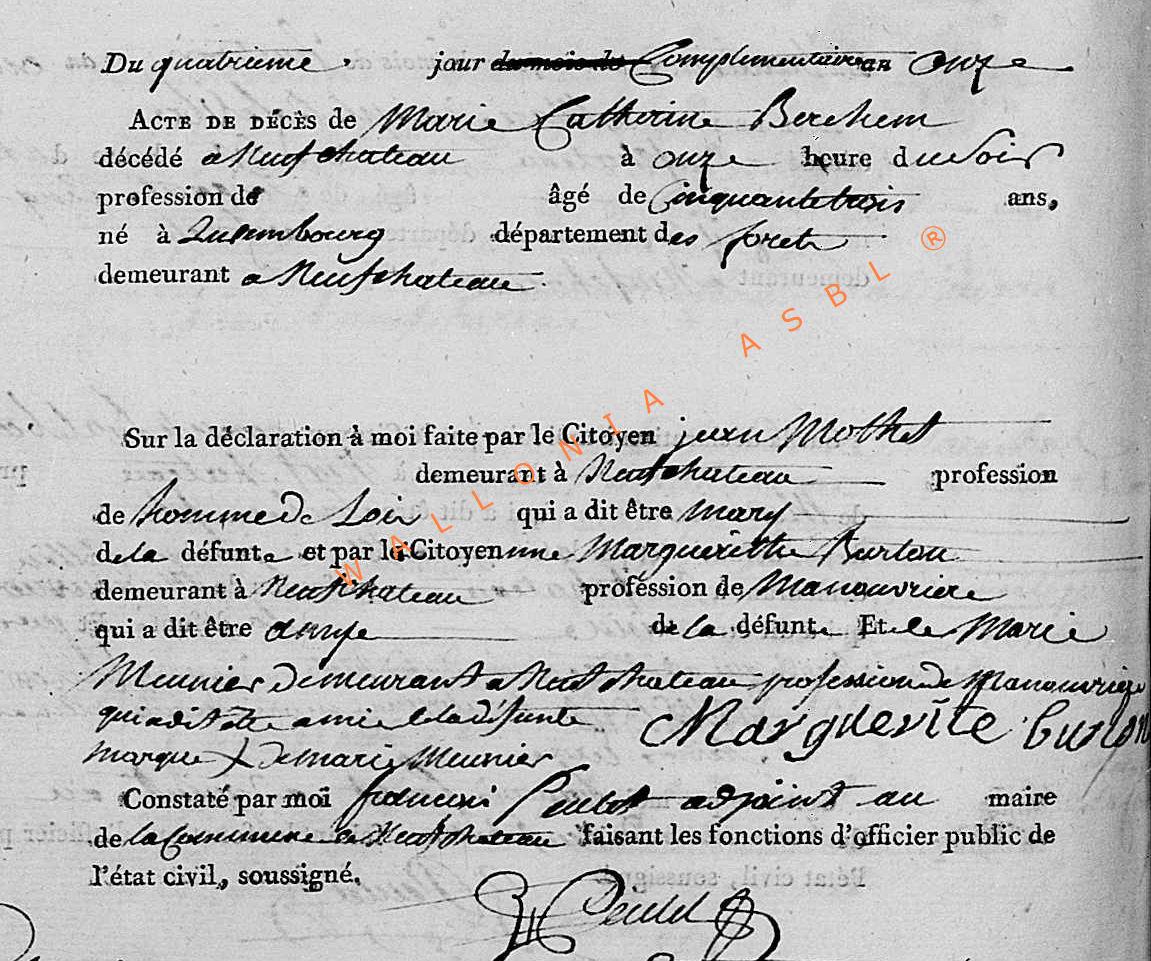 Du quatrieme jour du mois de Complementaire an onze
ACTE DE DÉCÈS de Marie Catherine Berchem
décédé a Neufchateau à onze heure du Soir
profession de âgé de Cinquante trois ans,
né à Luxembourg département des forets
demeurant a Neufchateau.
Sur la déclaration à moi faite par le Citoyen jean Mothet
demeurant à Neufchateau profession
de homme de Loix qui a dit être mary
de la défunte et par le Citoyenne Marguerithe Burlon
demeurant à Neufchateau profession de Manouvriere
qui a dit être amye de la défunte Et de Marie
Meunier demeurant a Neufchateau profession de Manouvriere
qui a dit être amie de la défunte Marguerite burlon
marque de marie Meunier
Constaté par moi francois adjoint au maire
de la Commune de Neufchateau faisant les fonctions d'officier public de
l'état civil, soussigné.
WALLONIA ASBL ®